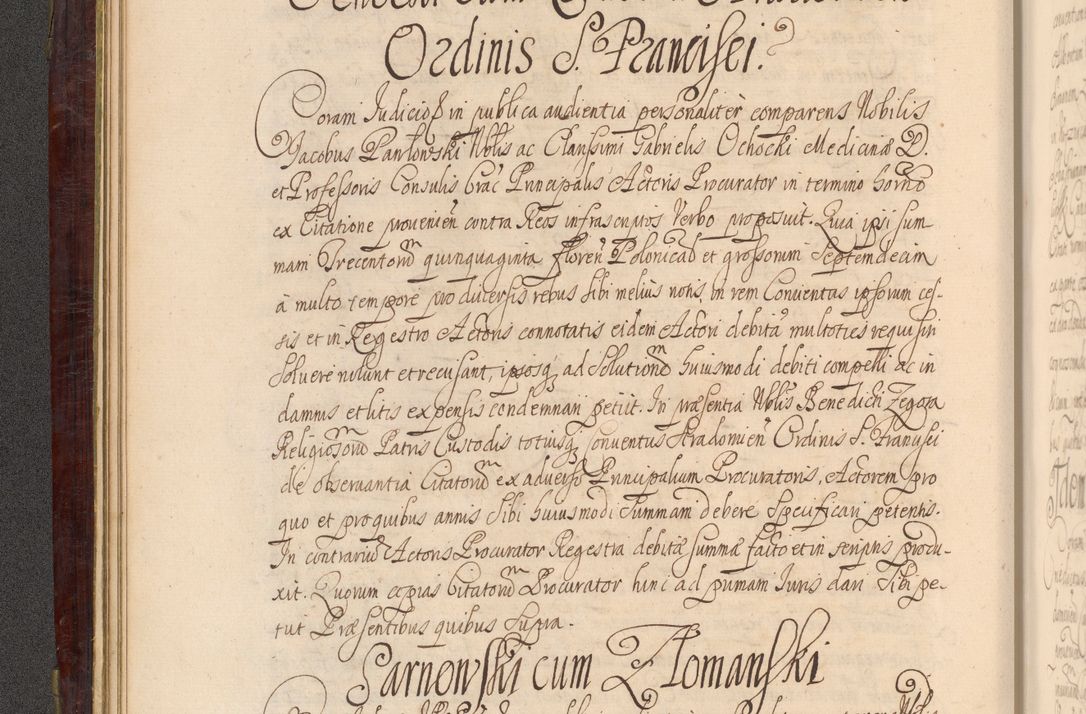 Ordinis S. Francisci.
Coram Judicio in publica audientia personaliter comparens Nobilis
Jacobus Pawłowski Nblis ac Clarissimi Gabrielis Ochocki Medicinæ D.
et Professoris Consulis Crac Principalis Actoris Procurator in termino horno
ex Citatione provenien contra Reos infrascriptos Verbo proposuit. Quia ipsi sum
mam Trecentorum quinquaginta floren Polonical et grossorum Septemdecim
à multo tempore pro diversis rebus sibi melius notis, in rem Conventus ipsorum ces-
sis et in Regestro Actoris connotatis eidem Actori debitâ multoties requisiti
Solvere nolunt et recusant, ipsosq ad Solutionem huiusmodi debiti compelli ac in
damnis et litis expensis condemnari petiit. In præsentia Nblis Benedicti Zegota
Religiosorum Patris Custodis totiusq Conventus Stradomien Ordinis S. Francisci
de observantia Citatorum ex adverso Principalium Procuratoris, Actorem pro
quo et pro quibus annis Sibi huiusmodi Summam debere Specificari petentis.
In contrarium Actoris Procurator Regestra debitæ summæ facto et in scriptis produ-
xit. Quorum copias Citatorum Procurator hinc ad primam Juris dari Sibi pe-
tut Præsentibus quibus Supra.
Sarnowski cum Złomanski